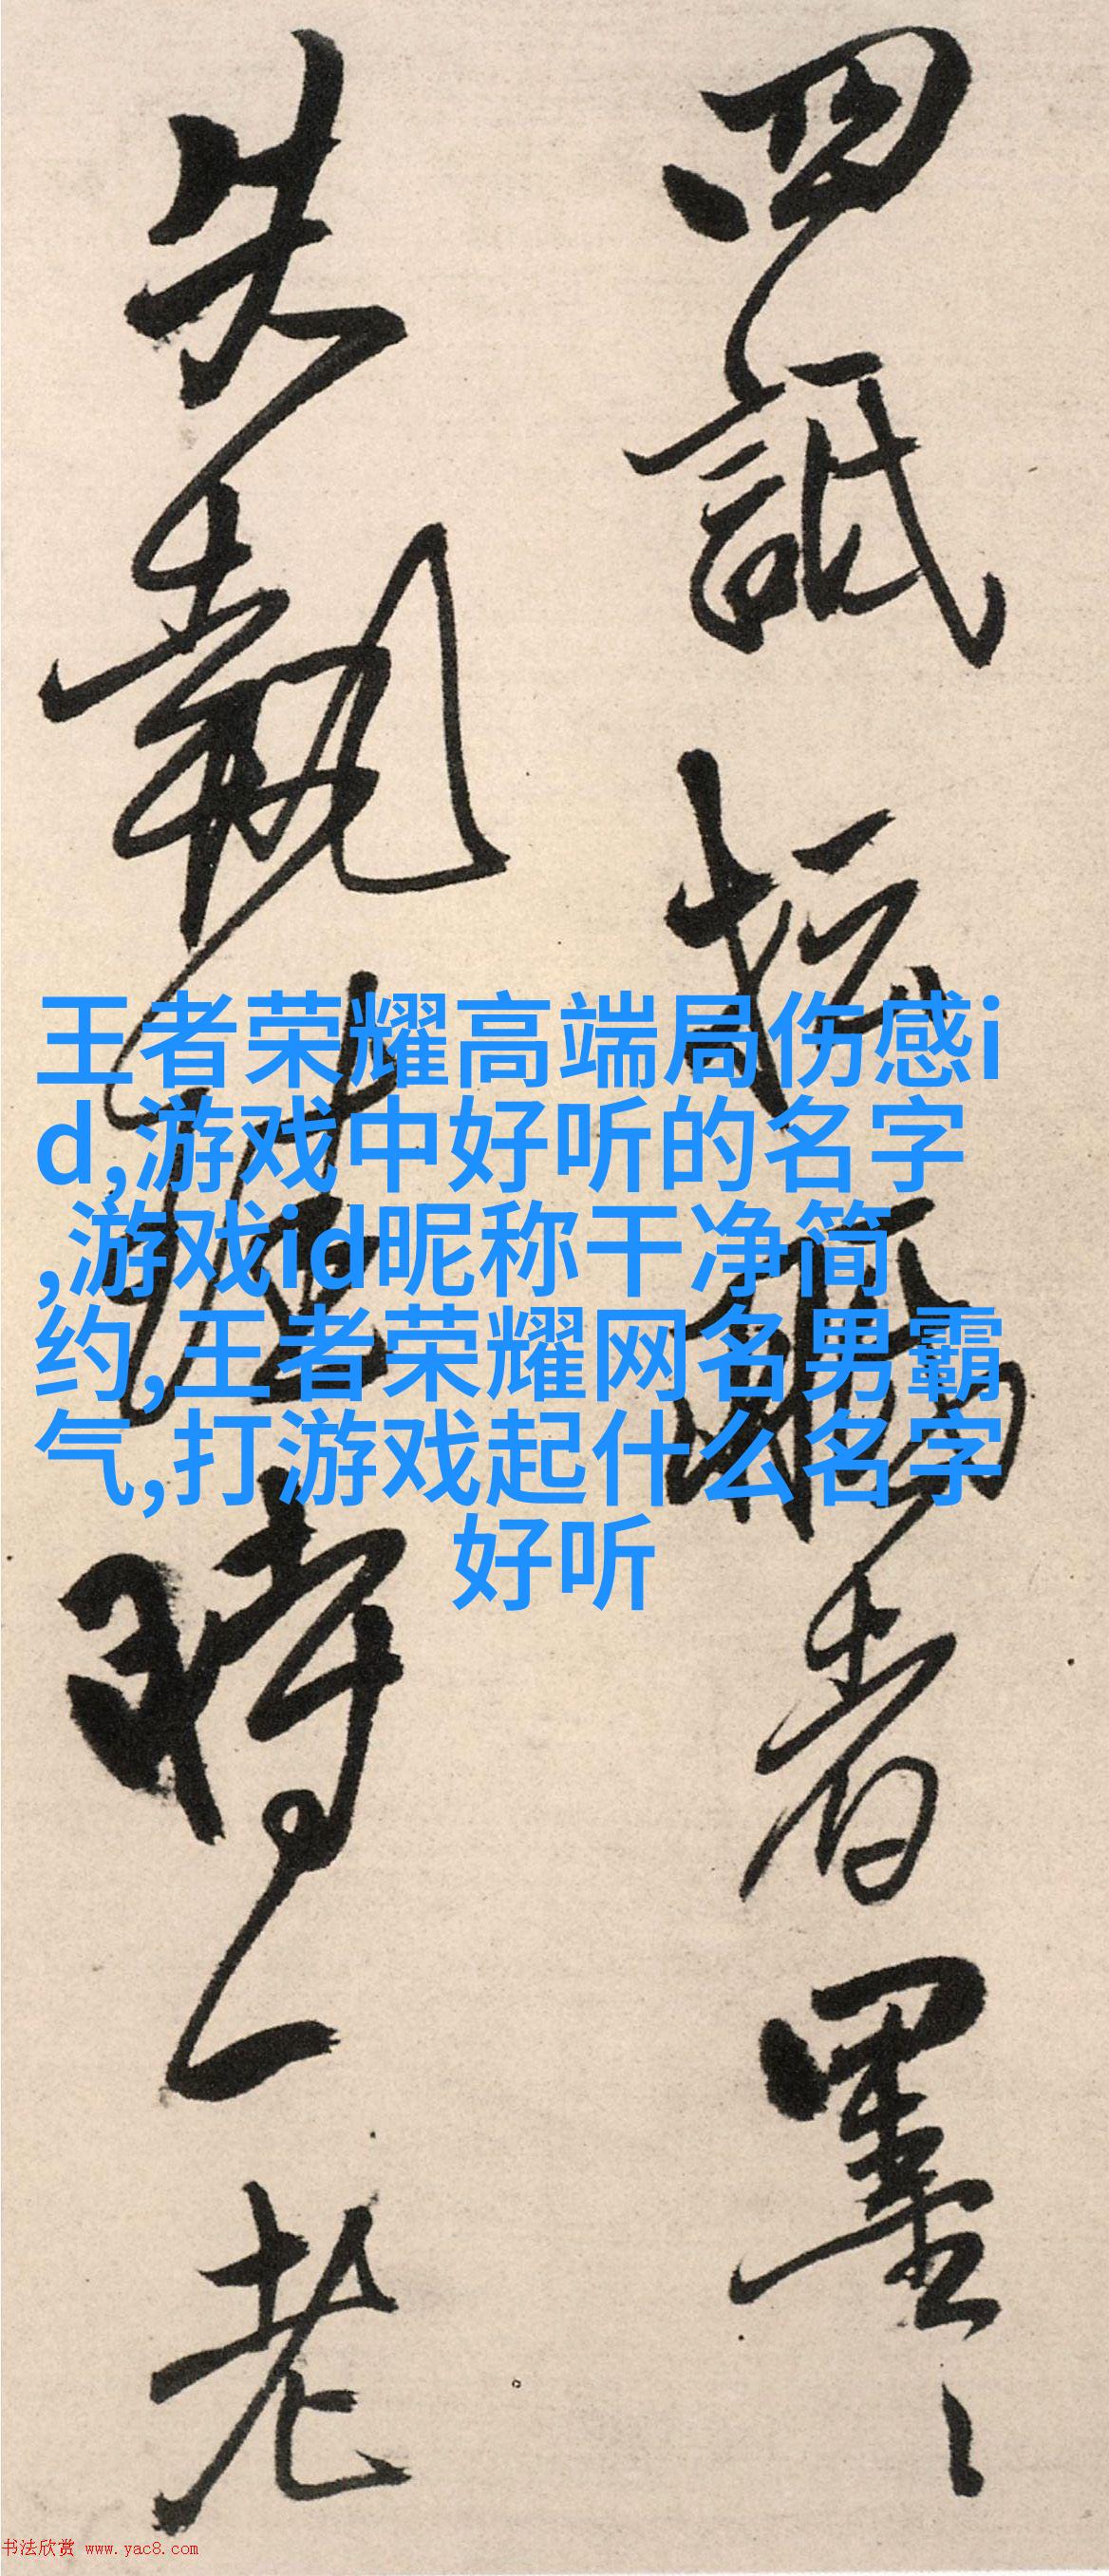 四詆坛
者墨
失執
時一老
王者荣耀高端局伤感i
d,游戏中好听的名字
,游戏id昵称干净简
约,王者荣耀网名男霸
气,打游戏起什么名字
好听
书法欣赏 www.yac8.com